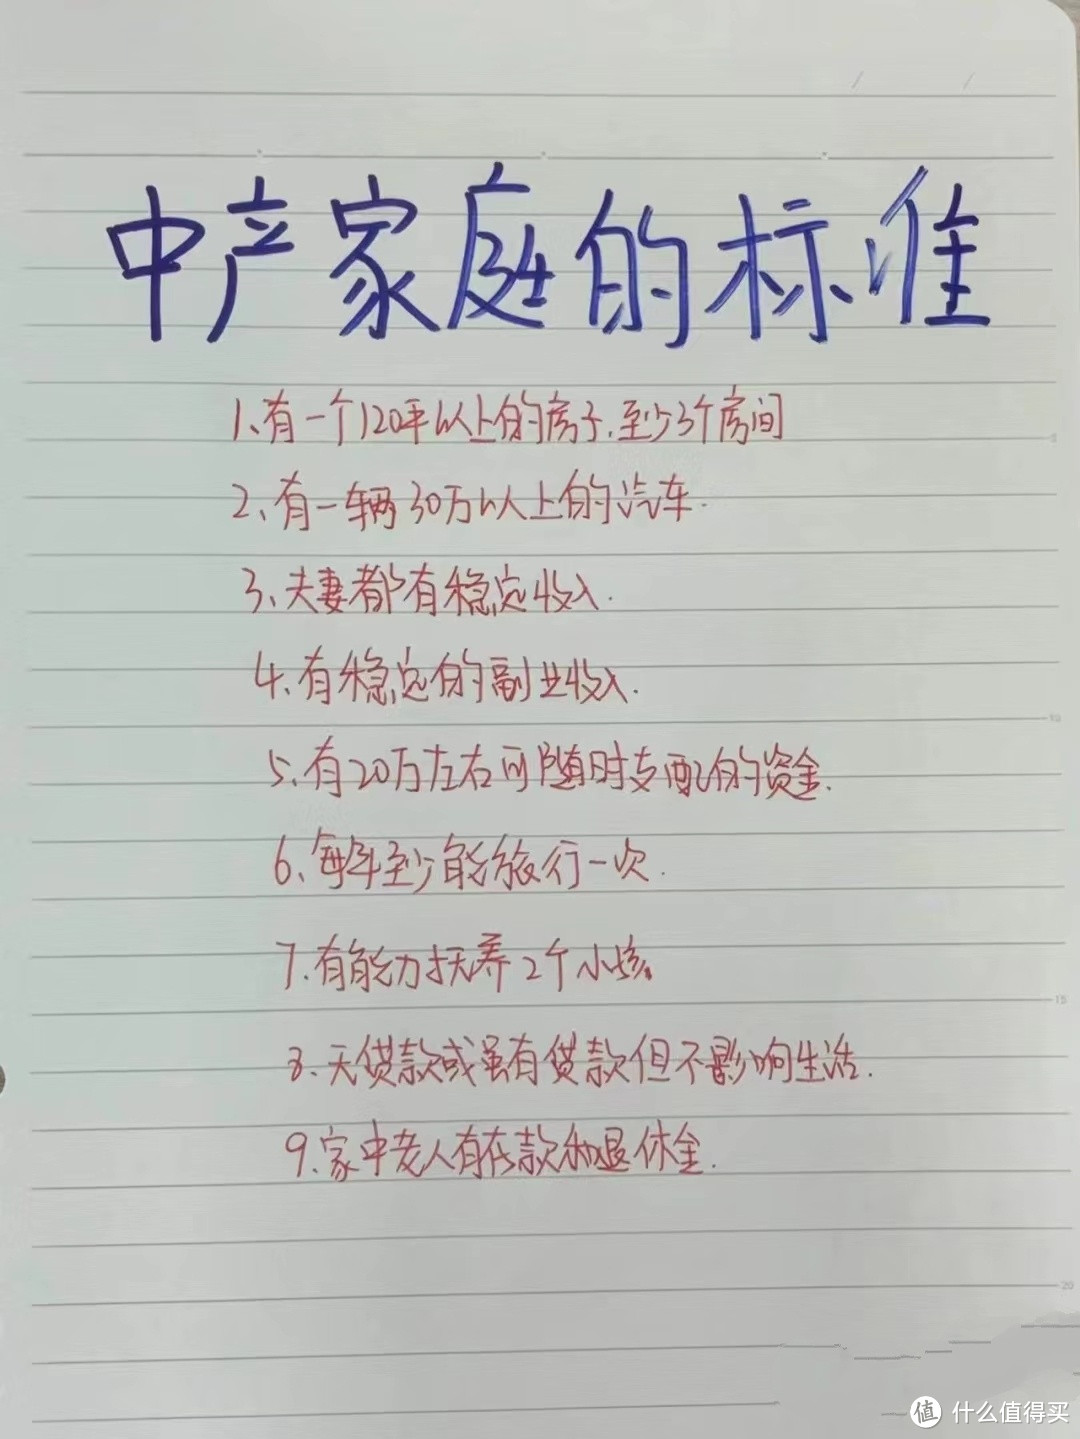 中产家庭的标准
1、有一个120平以上的房子.至少3个房间
2、有一辆30万以上的汽车.
3、夫妻都有稳定收入.
4、有稳定的副业收入.
5、有20万左右可随时支配的资金.
6、每年至少能旅行一次.
7、有能力抚养2个小孩.
8、无贷款或虽有贷款但不影响生活.
9、家中老人有存款和退休金.
5
10
15
20
值 什么值得买